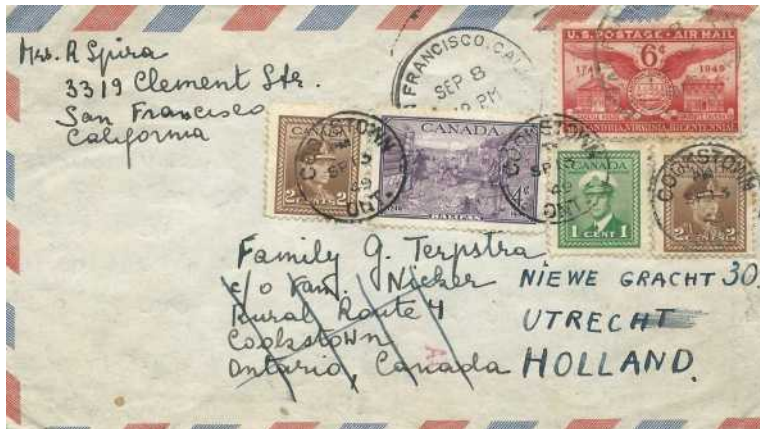 Mrs. R Spira
3319 Clement Str.
San Francisco
California
FRANCISCO, CAL
SEP 8
PM
U.S. POSTAGE • AIR MAIL
6¢
1749 1949
ALEXANDRIA, VIRGINIA, BICENTENNIAL
2 CENTS 2
COOKSTOWN
SP 13
49
ONT.
CANADA
4
HALIFAX
COOKSTOWN
SP 13
49
ONT.
CANADA
1 CENT 1
COOKSTOWN
2 CENTS 2
Family G. Terpstra
c/o Fam. Nicker
Rural Route 4
Cookstown
Ontario, Canada
NIEWE GRACHT 30.
UTRECHT
HOLLAND.